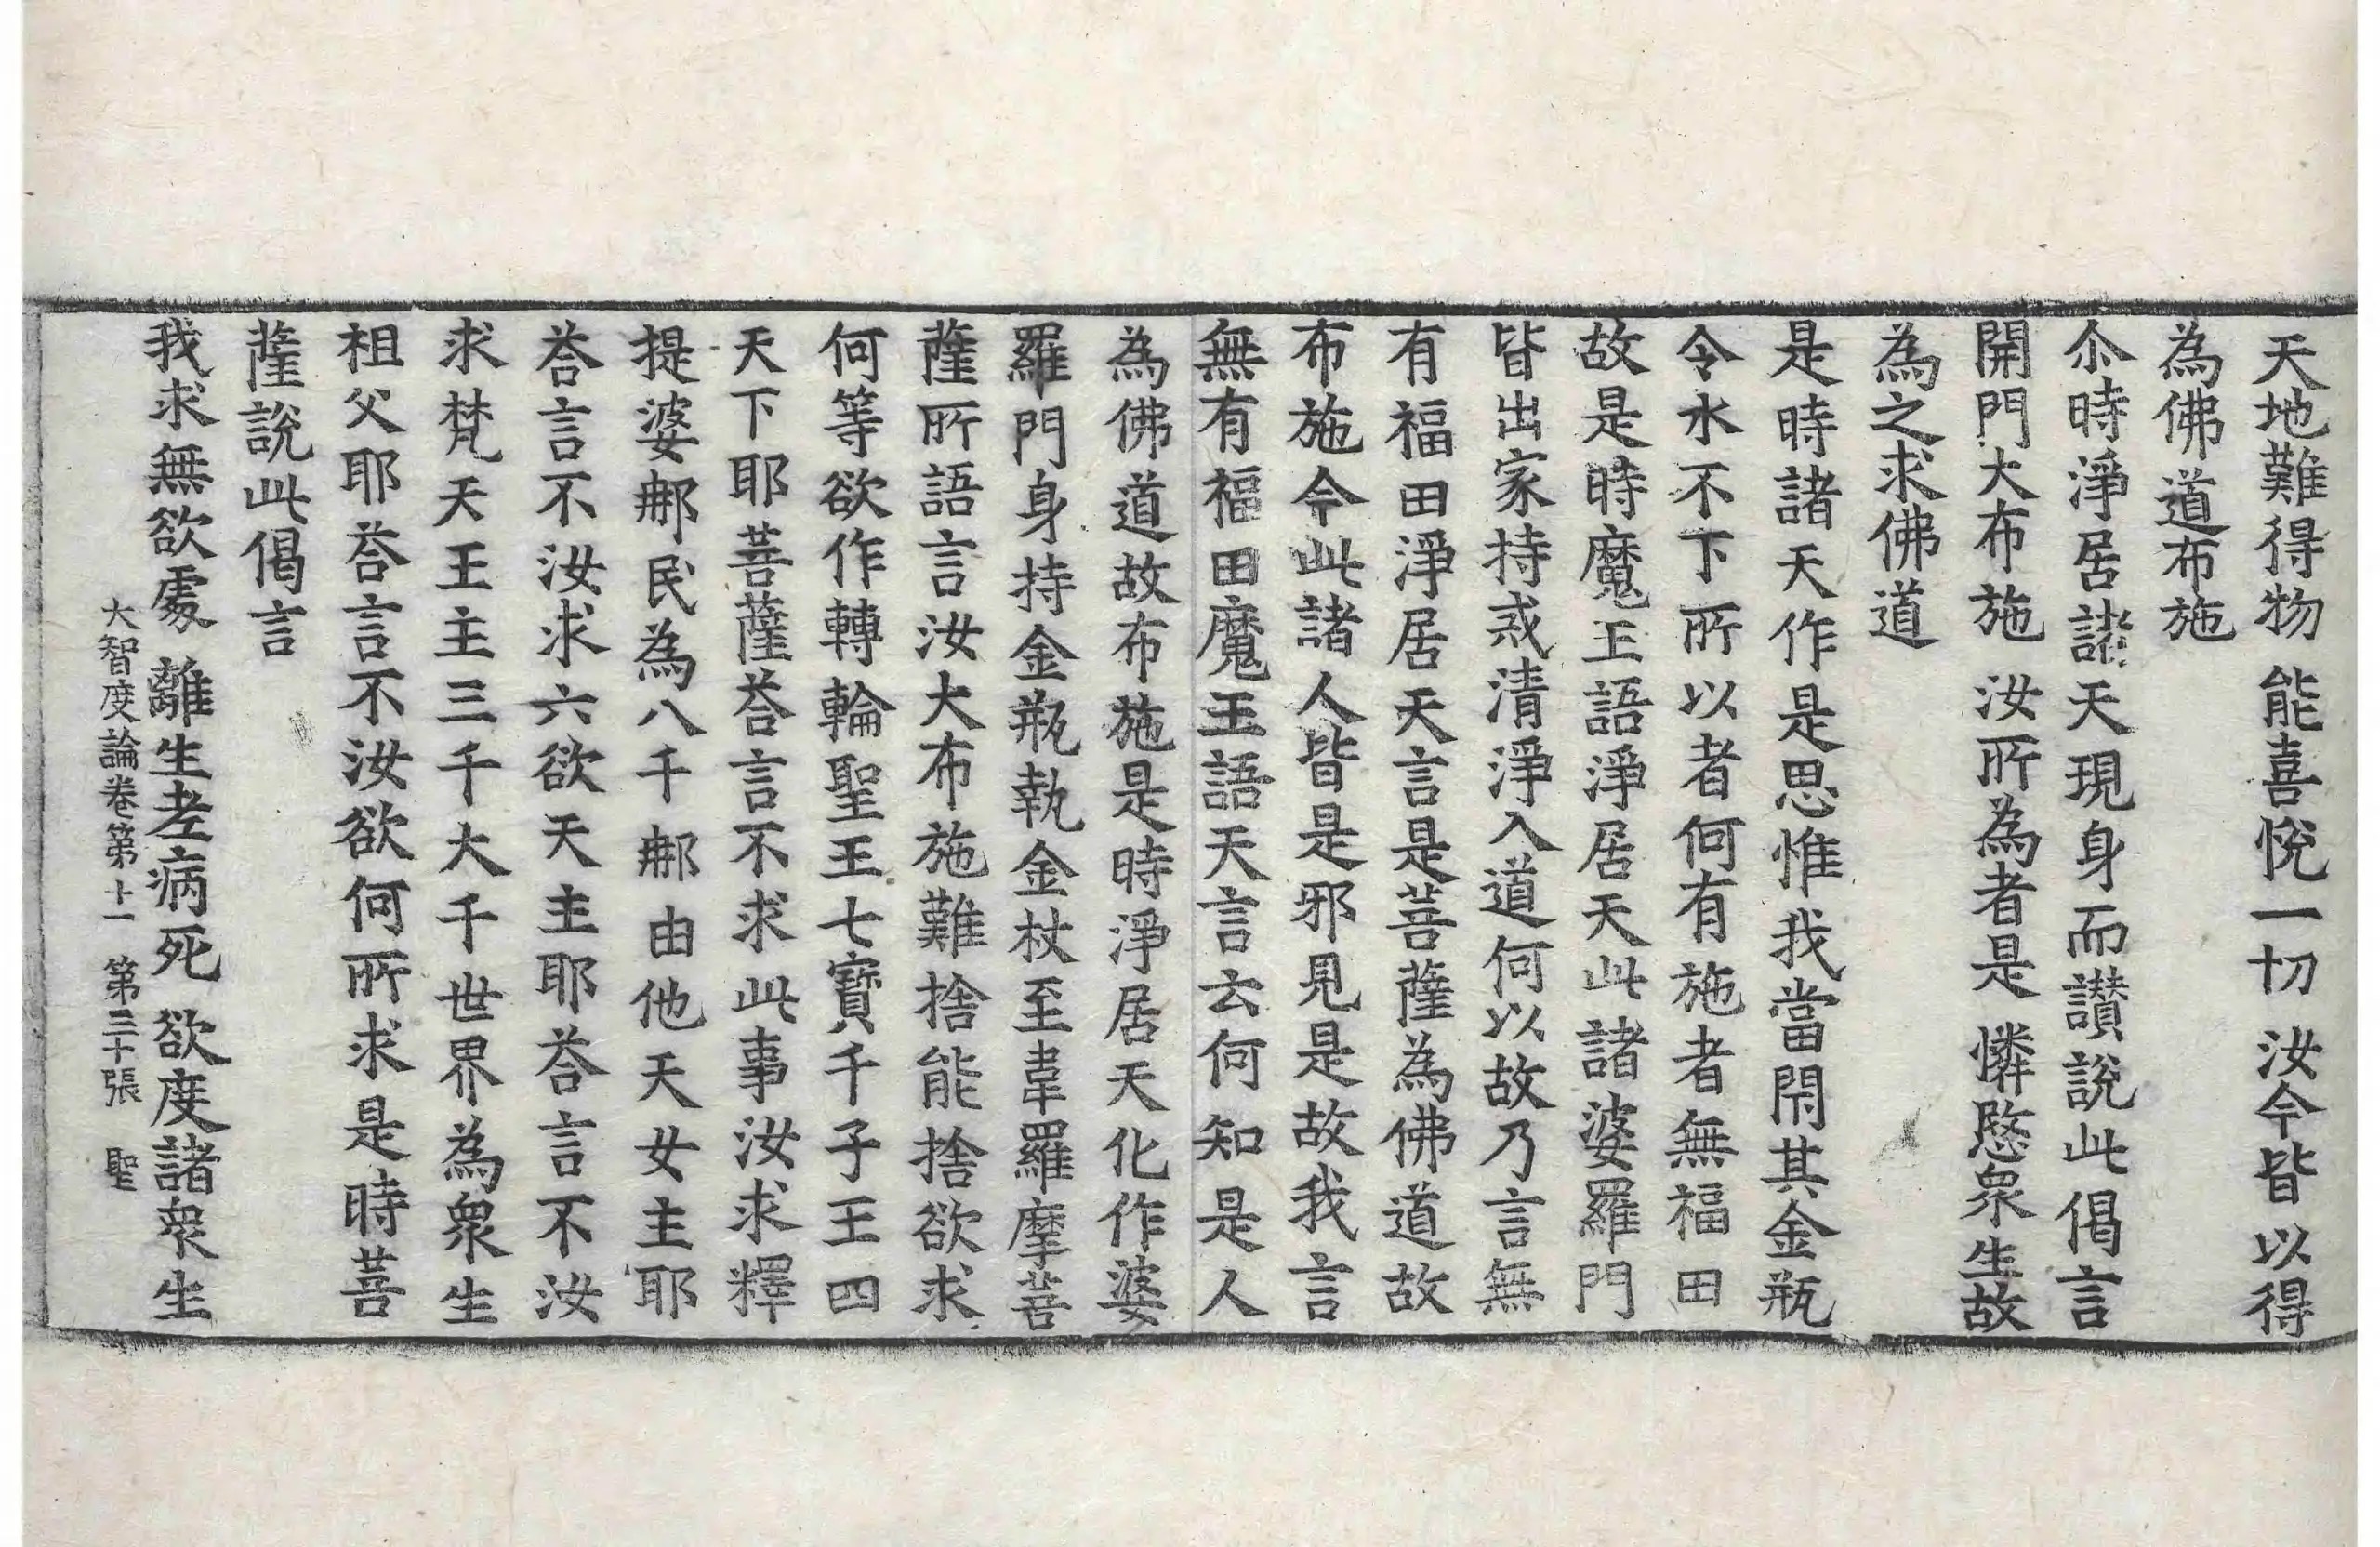 天地難得物 能喜悅一切 汝今皆以得
為佛道布施
尒時淨居諸天現身而讚說此偈言
開門大布施 汝所為者是 憐愍眾生故
為之求佛道
是時諸天作是思惟我當閇其金瓶
令水不下所以者何有施者無福田
故是時魔王語淨居天此諸婆羅門
皆出家持戒清淨入道何以故乃言無
有福田淨居天言是菩薩為佛道故
布施今此諸人皆是邪見是故我言
無有福田魔王語天言云何知是人
為佛道故布施是時淨居天化作婆
羅門身持金瓶執金杖至韋羅摩菩
薩所語言汝大布施難捨能捨欲求
何等欲作轉輪聖王七寶千子王四
天下耶菩薩荅言不求此事汝求釋
提婆𨚗民為八千𨚗由他天女主耶
荅言不汝求六欲天主耶荅言不汝
求梵天王主三千大千世界為眾生
祖父耶荅言不汝欲何所求是時菩
薩說此偈言
我求無欲處 離生老病死 欲度諸眾生
大智度論卷第十一 第三十張 聖